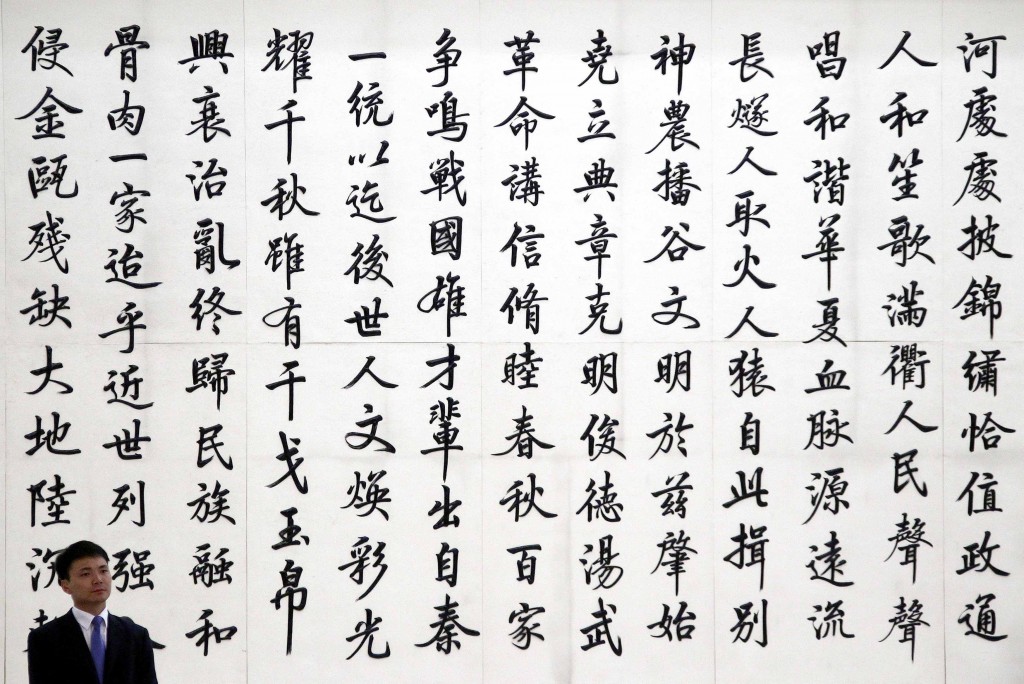 河處處披錦繡恰值政通
人和笙歌滿衢人民聲聲
唱和諧華夏血脉源遠流
長燧人取火人猿自此揖別
神農播谷文明於茲肇始
堯立典章克明俊德湯武
革命講信脩睦春秋百家
争鳴戰國雄才輩出自秦
一統以迄後世人文焕彩光
耀千秋雖有干戈玉帛
興衰治亂終歸民族融和
骨肉一家迨乎近世列强
侵金甌殘缺大地陸沉